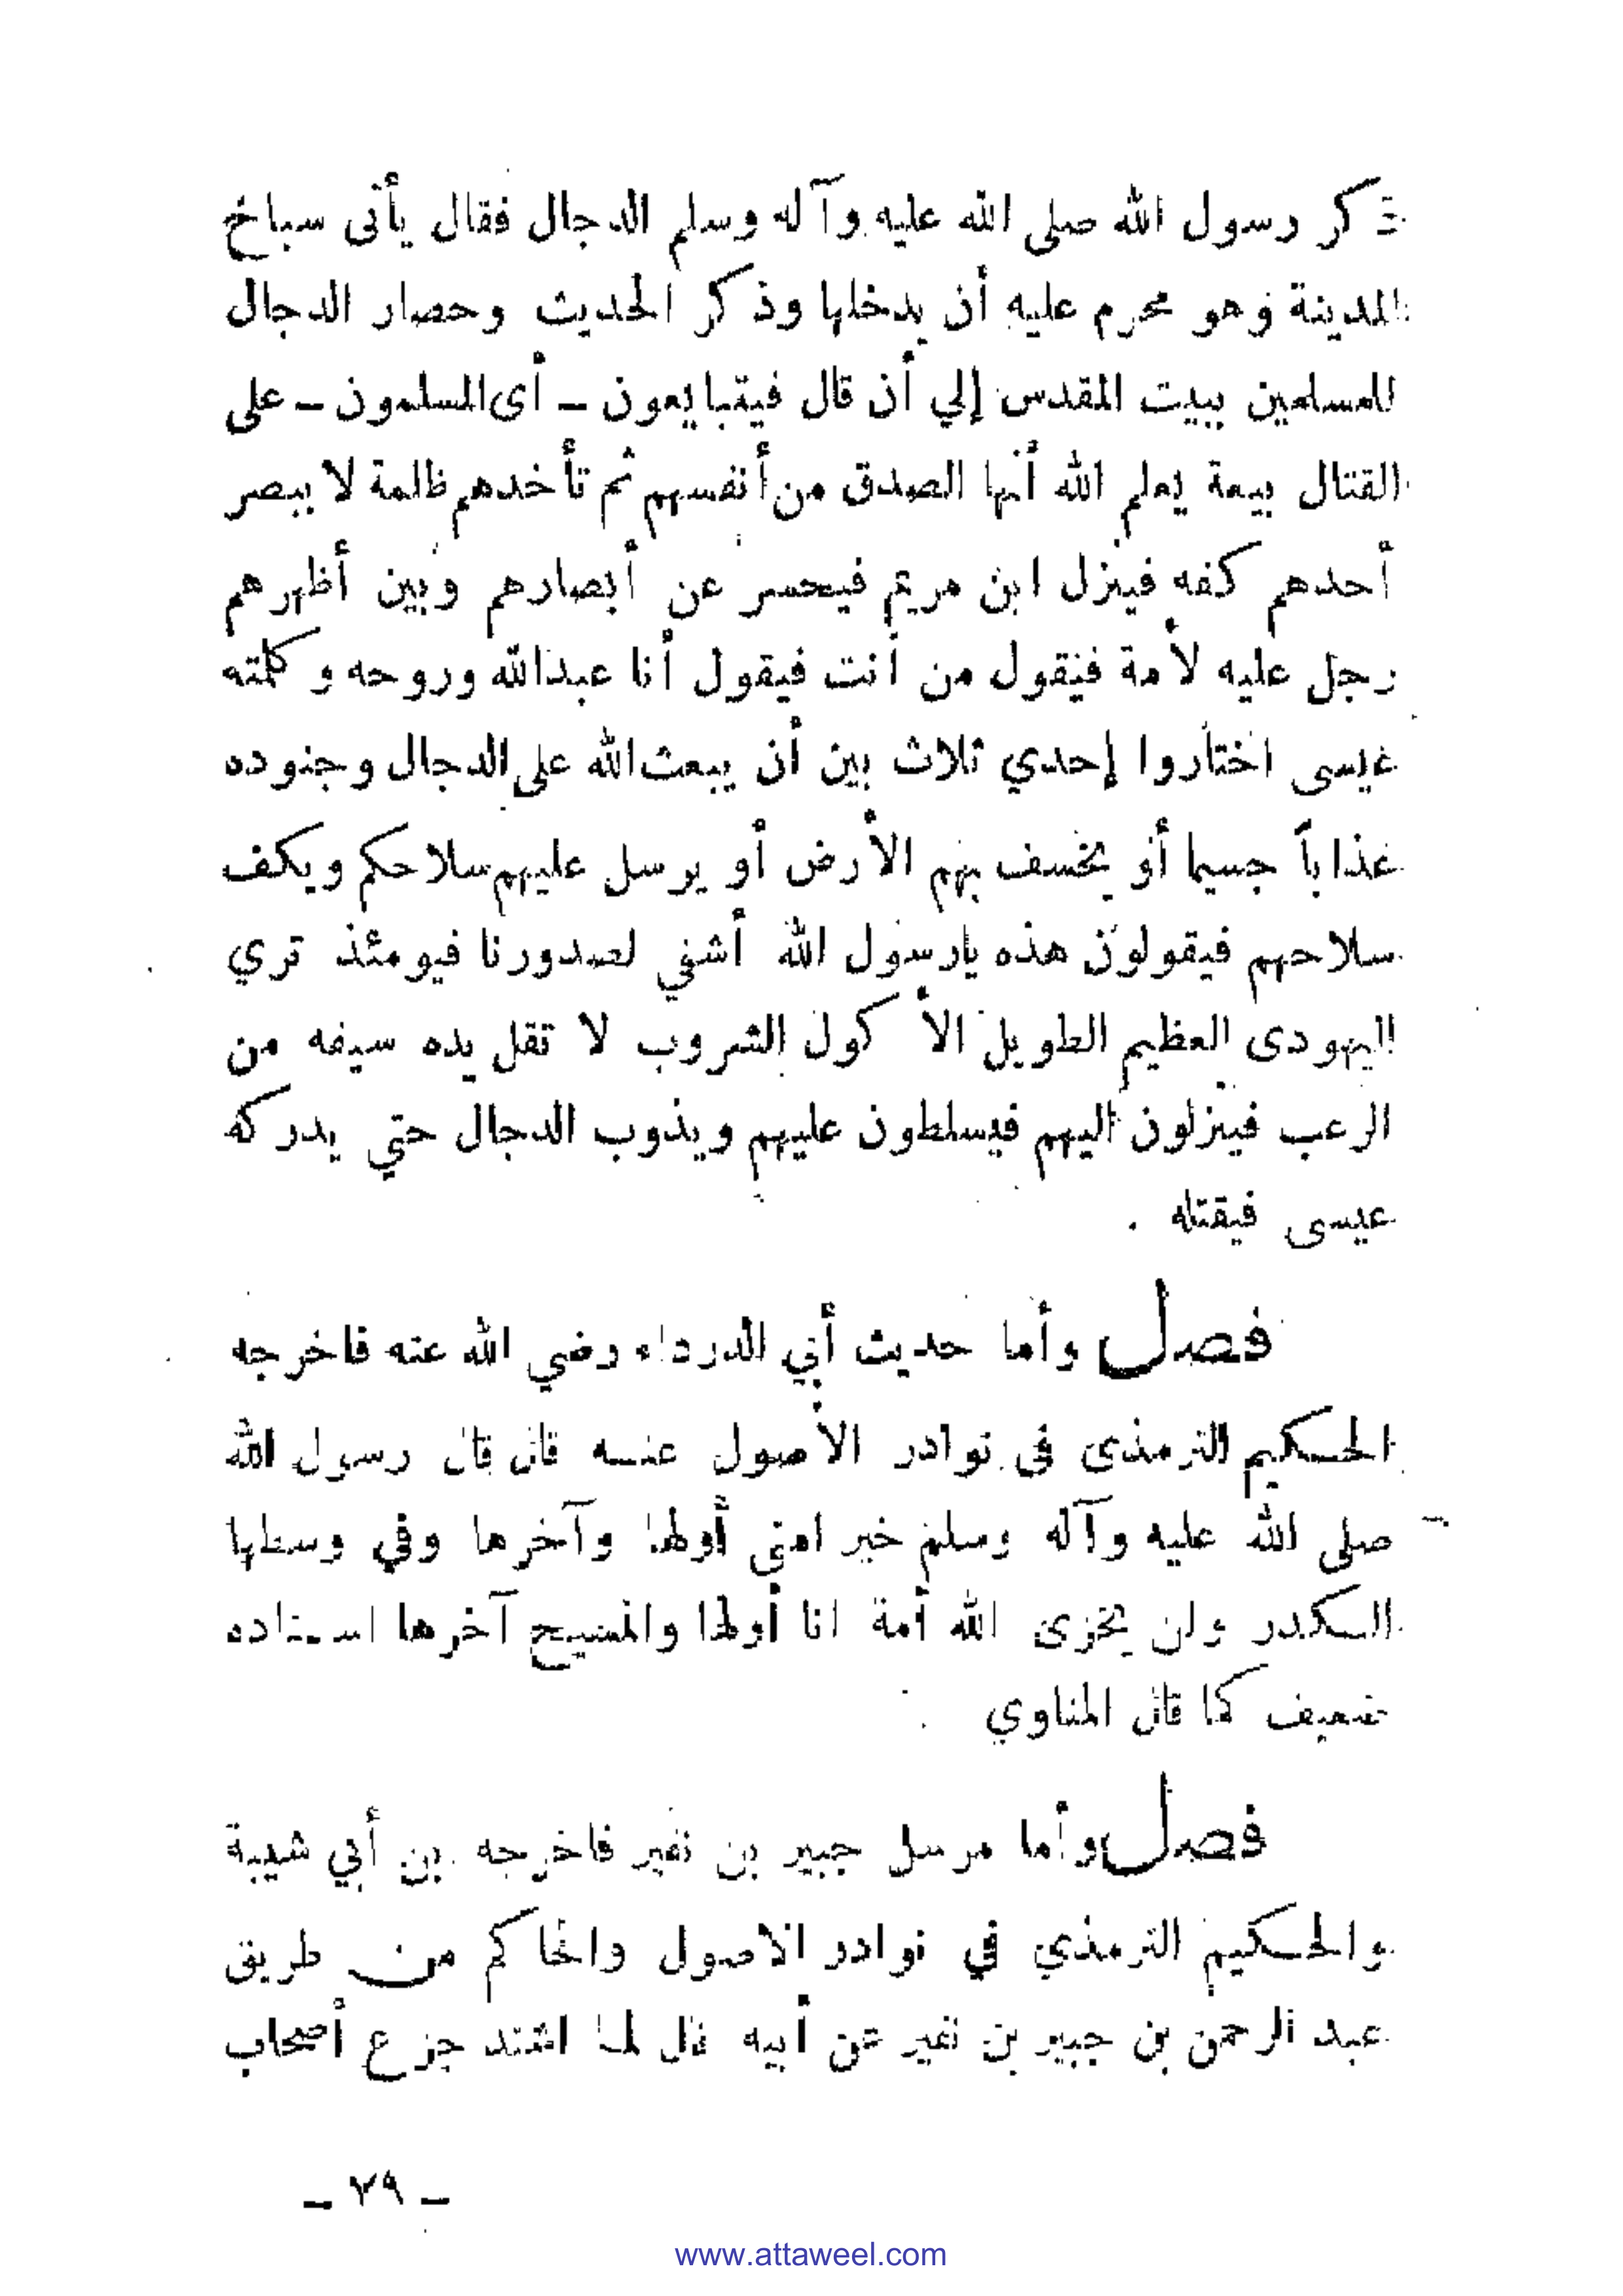 ذكر رسول الله صلى الله عليه وآله وسلم الدجال فقال يأتى سباخ
المدينة وهو محرم عليه أن يدخلها وذكر الحديث وحصار الدجال
للمسلمين ببيت المقدس إلي أن قال فيتبايعون ــ أى المسلمون ــ على
القتال بيعة يعلم الله أنها الصدق من أنفسهم ثم تأخدهم ظلمة لا يبصر
أحدهم كفه فينزل ابن مريم فيحسر عن أبصارهم وبين أظهرهم
رجل عليه لأمة فيقول من أنت فيقول أنا عبدالله وروحه وكلمته
عيسى اختاروا إحدي ثلاث بين أن يبعث الله على الدجال وجنوده
عذاباً جسيما أو يخسف بهم الأرض أو يرسل عليهم سلاحكم ويكف
سلاحهم فيقولون هذه يارسول الله أشفي لصدورنا فيومئذ تري
اليهودى العظيم الطويل الأكول الشروب لا تقل يده سيفه من
الرعب فينزلون اليهم فيسلطون عليهم ويذوب الدجال حتي يدركه
عيسى فيقتله .
فصل وأما حديث أبي الدرداء رضي الله عنه فاخرجه
الحكيم الترمذى فى نوادر الأصول عنه قال قال رسول الله
صلى الله عليه وآله وسلم خير امتى أولها وآخرها وفي وسطها
الكدر ولن يخزى الله أمة انا أولها والمسيح آخرها اسناده
ضعيف كما قال المناوي .
فصل وأما مرسل جبير بن نفير فاخرجه بن أبي شيبة
والحكيم الترمذي في نوادر الاصول والحاكم من طريق
عبد الرحمن بن جبير بن نفير عن أبيه قال لما اشتد جزع أصحاب
ــ ٧٩ ــ
www.attaweel.com